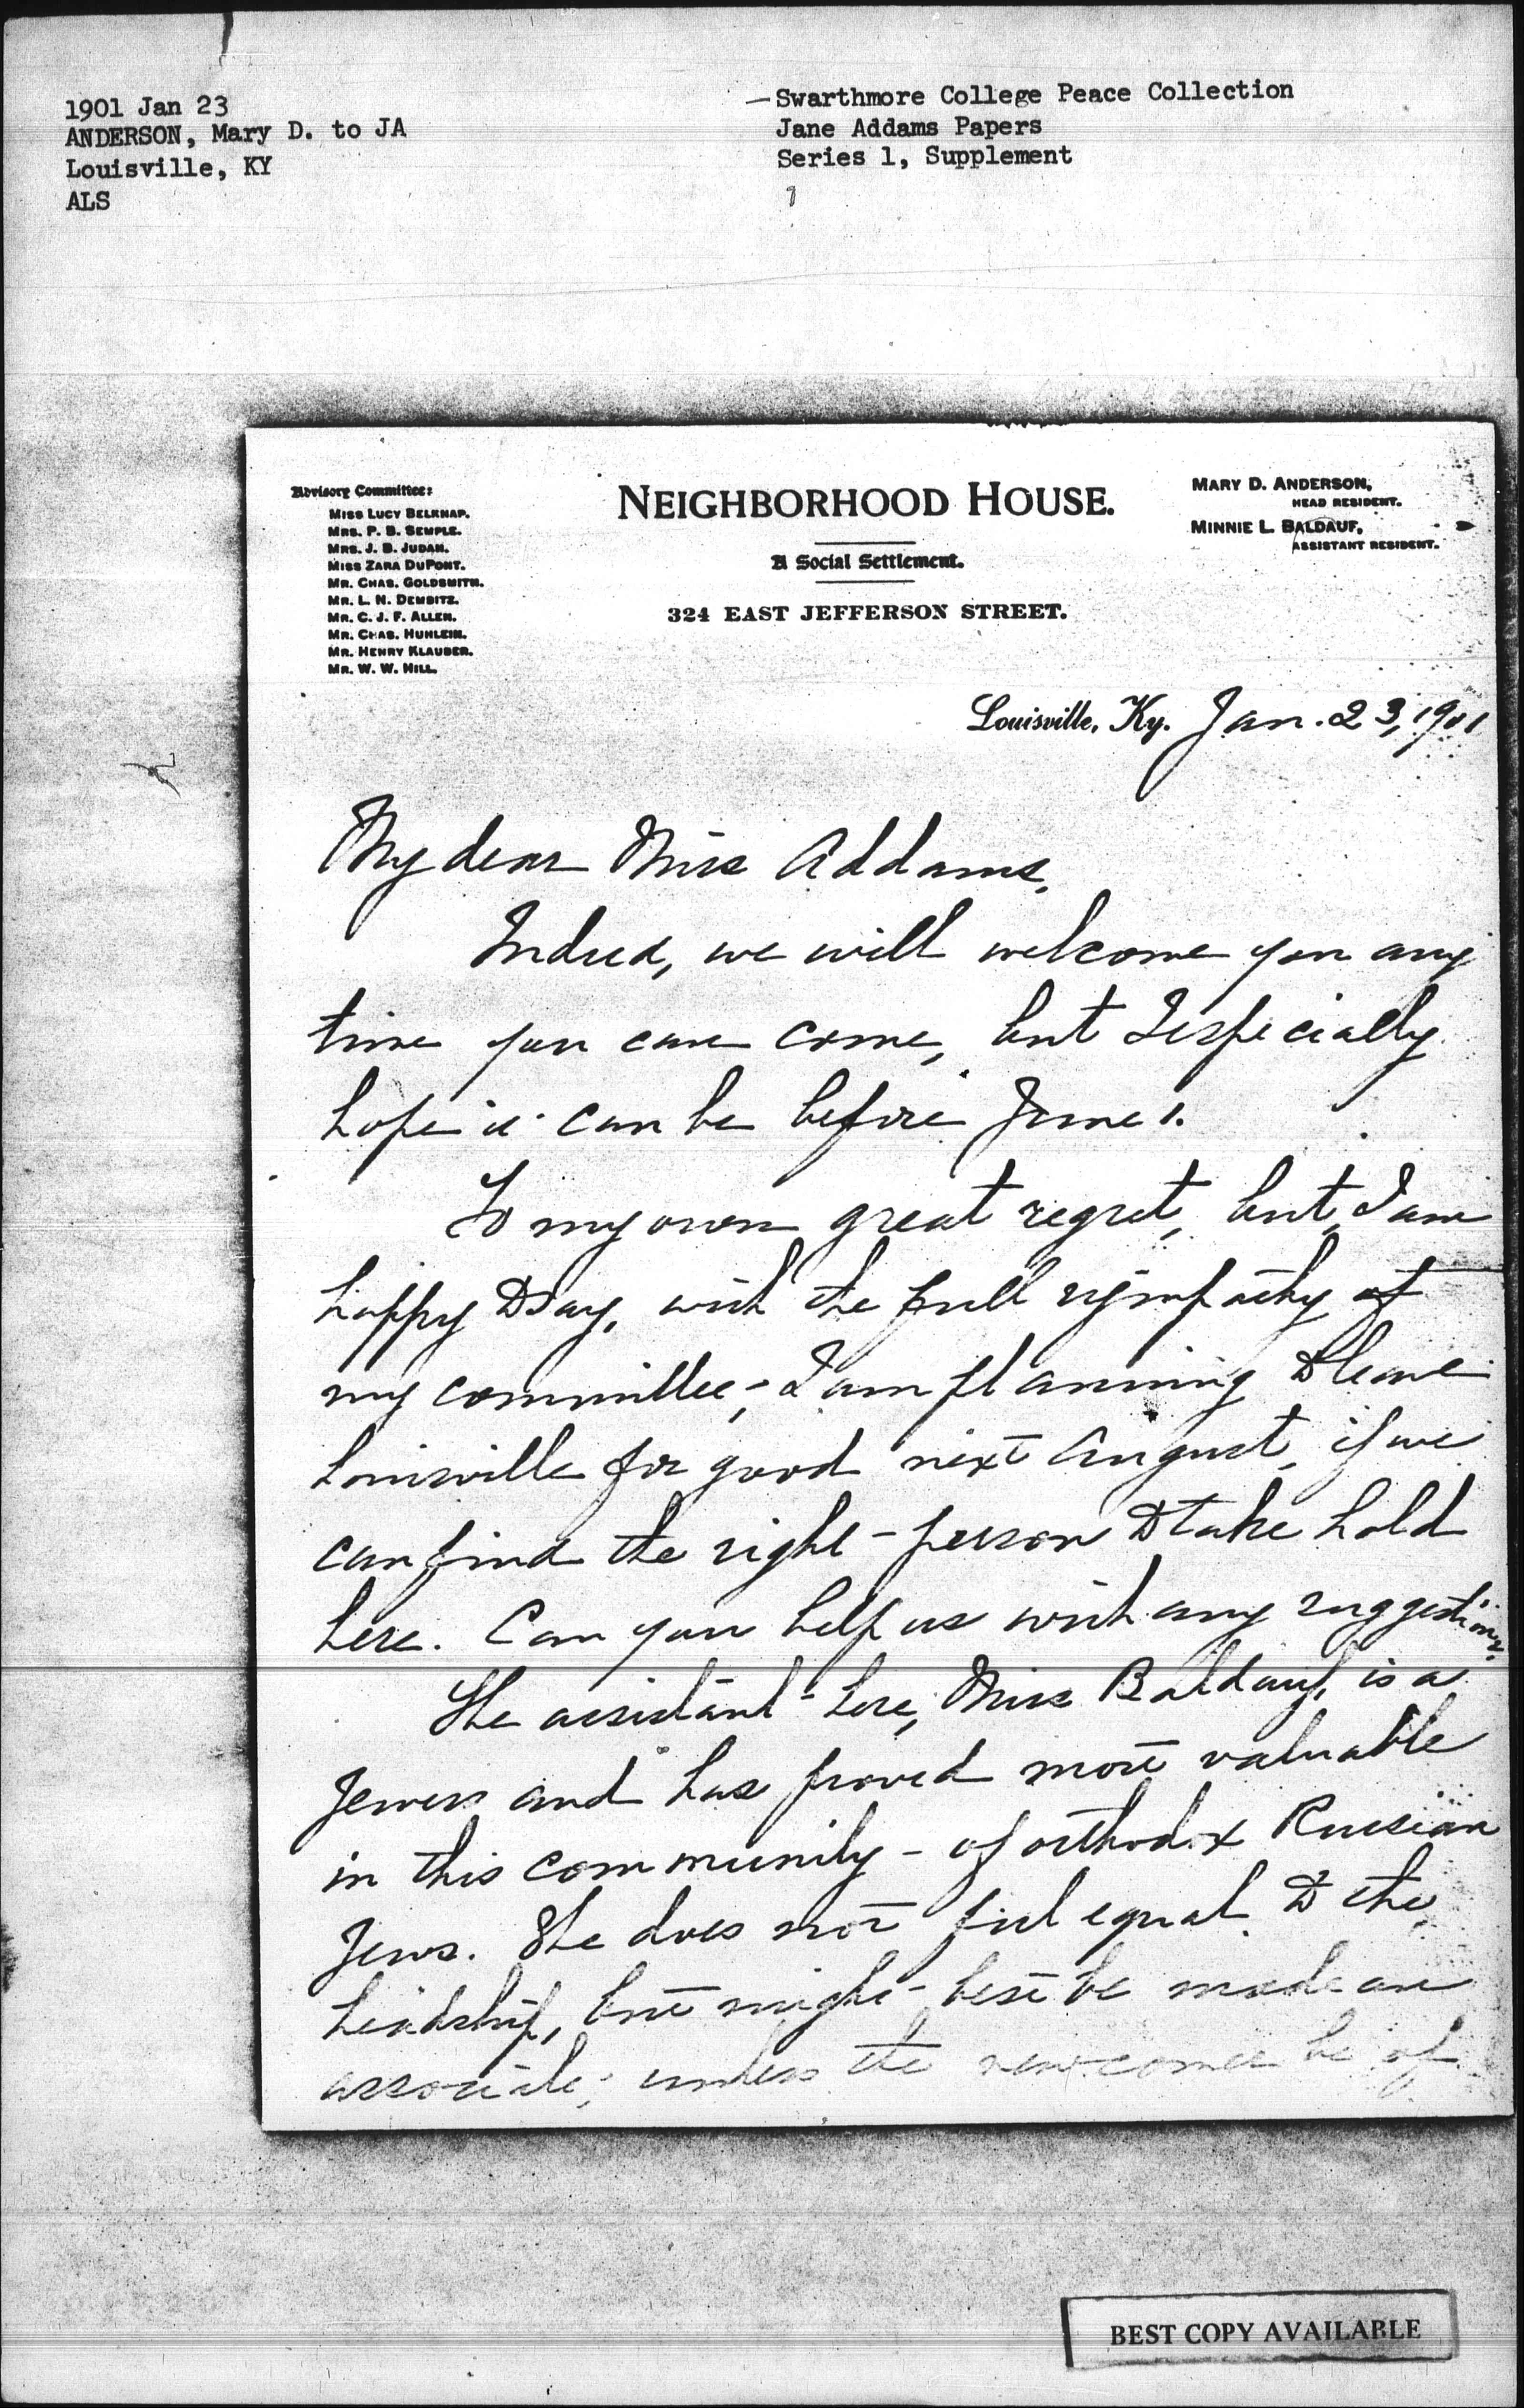 1901 Jan 23
ANDERSON, Mary D. to JA
Louisville, KY
ALS
—Swarthmore College Peace Collection
Jane Addams Papers
Series 1, Supplement
Advisory Committee:
MISS LUCY BELKNAP.
MRS. P. B. SEMPLE.
MRS. J. B. JUDAH.
MISS ZARA DUPONT.
MR. CHAS. GOLDSMITH.
MR. L. N. DEMBITZ.
MR. C. J. F. ALLEN.
MR. CHAS. HUHLEIN.
MR. HENRY KLAUBER.
MR. W. W. HILL.
NEIGHBORHOOD HOUSE.
A Social Settlement.
324 EAST JEFFERSON STREET.
MARY D. ANDERSON,
HEAD RESIDENT.
MINNIE L. BALDAUF,
ASSISTANT RESIDENT.
Louisville, Ky. Jan. 23, 1901
My dear Miss Addams,
Indeed, we will welcome you any
time you can come, but I especially
hope it can be before June 1.
To my own great regret, but, I am
happy to say, with the full sympathy of
my committee,- I am planning to leave
Louisville for good next August, if we
can find the right person to take hold
here. Can you help us with any suggestions.
The assistant here, Miss Baldauf, is a
Jewess and has proved most valuable
in this community - of orthodox Russian
Jews. She does not feel equal to the
headship, but might best be made an
associate; unless the newcomer be of
BEST COPY AVAILABLE